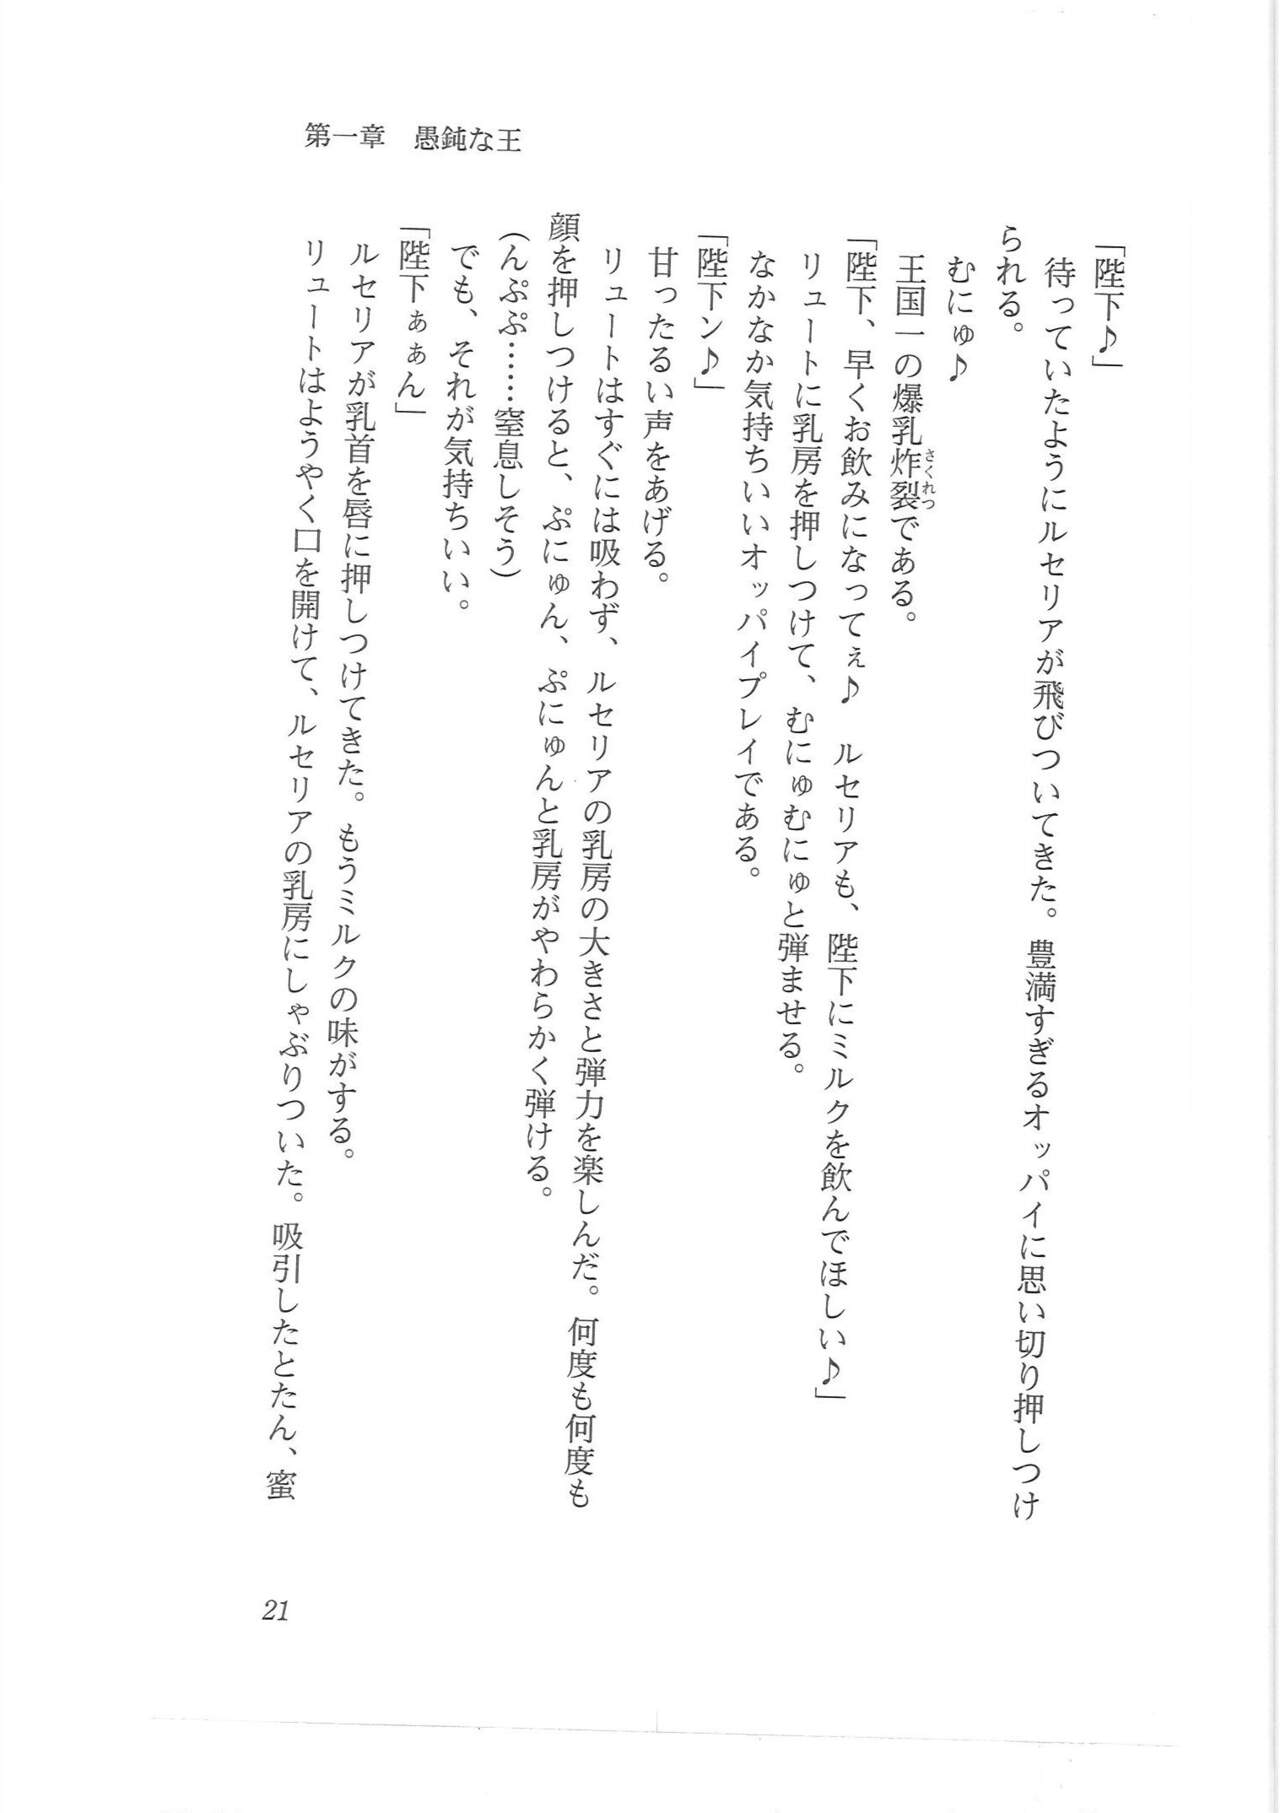 第一章　愚鈍な王
「陛下♪」
待っていたようにルセリアが飛びついてきた。豊満すぎるオッパイに思い切り押しつけ
られる。
むにゅ♪
王国一の爆乳炸裂である。
さくれつ
「陛下、早くお飲みになってぇ♪　ルセリアも、陛下にミルクを飲んでほしい♪」
リュートに乳房を押しつけて、むにゅむにゅと弾ませる。
なかなか気持ちいいオッパイプレイである。
「陛下ン♪」
甘ったるい声をあげる。
リュートはすぐには吸わず、ルセリアの乳房の大きさと弾力を楽しんだ。何度も何度も
顔を押しつけると、ぷにゅん、ぷにゅんと乳房がやわらかく弾ける。
(んぷぷ……窒息しそう)
でも、それが気持ちいい。
「陛下ぁぁん」
ルセリアが乳首を唇に押しつけてきた。もうミルクの味がする。
リュートはようやく口を開けて、ルセリアの乳房にしゃぶりついた。吸引したとたん、蜜
21